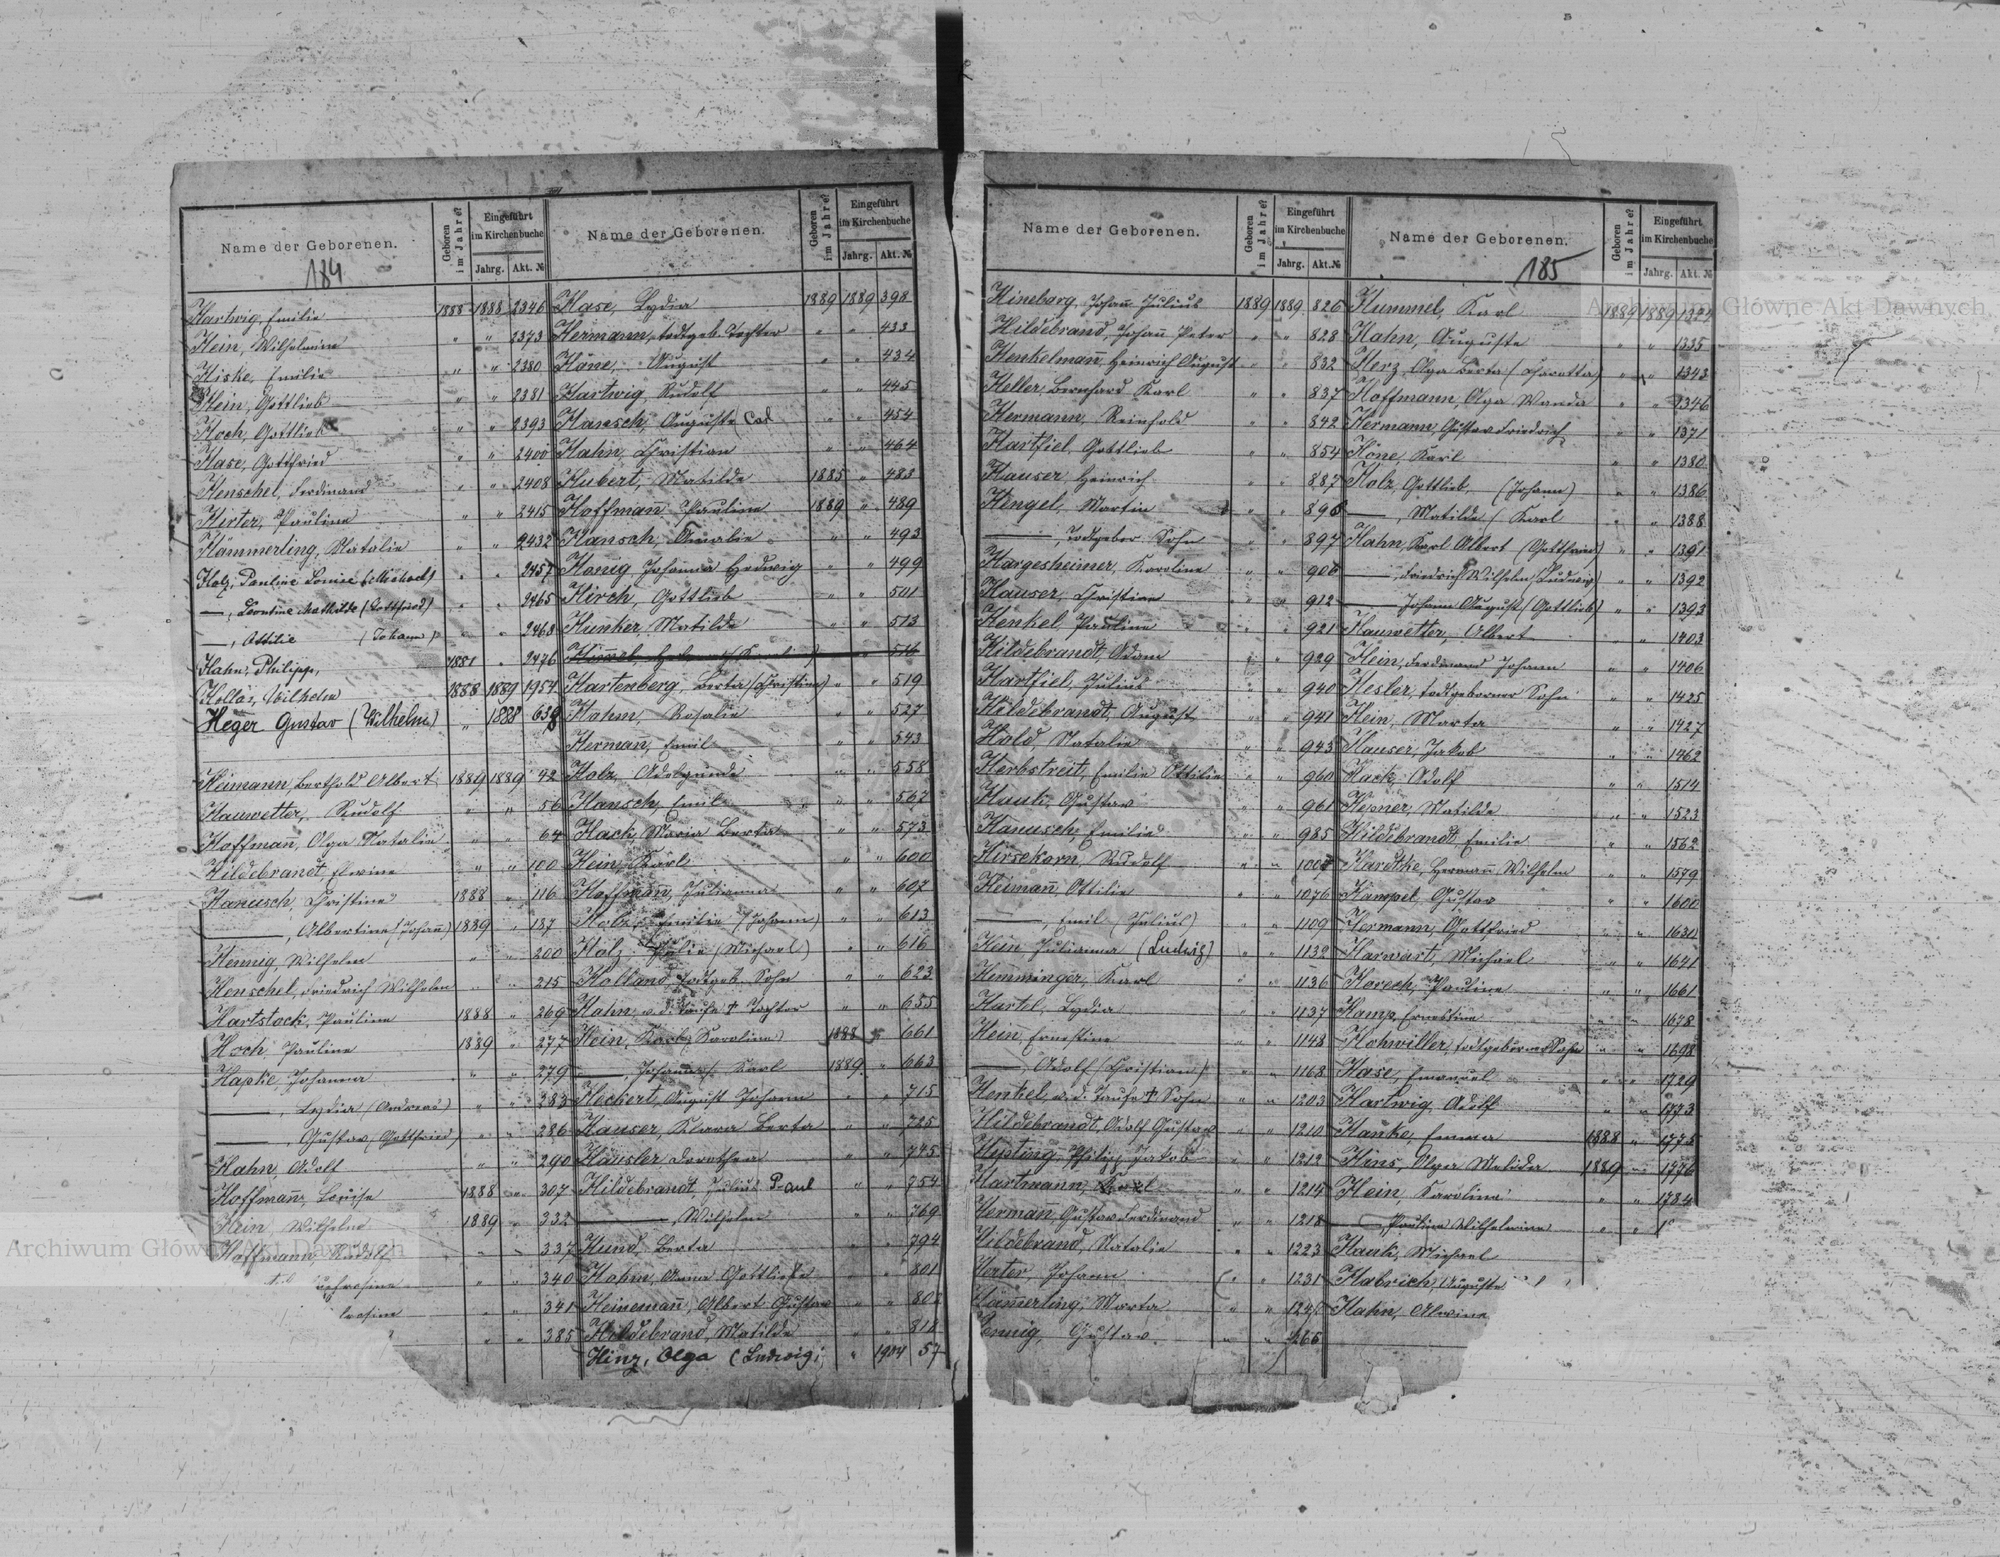 Name der Geborenen. Geboren im Jahre? Eingeführt im Kirchenbuche Jahrg. Akt. №
184
Hartwig, Emilie 1888 1888 2346
Hein, Wilhelmine " " 2373
Hiske, Emilie " " 2380
Hein, Gottlieb " " 2381
Hoch, Gottlieb " " 2393
Hase, Gottfried " " 2400
Henschel, Ferdinand " " 2408
Hirter, Pauline " " 2415
Hämmerling, Natalie " " 2432
Holz, Pauline Louise (Michael) " " 2457
——, Leontine Mathilde (Gottfried) " " 2465
——, Ottilie (Johann) " " 2468
Hahn, Philipp, 1881 " 2476
Wilhelm 1888 1889 1954
Heger Gustav (Wilhelm) " 1888
Heimann, Berthold Albert 1889 1889 42
Hauwetter, Rudolf " " 56
Hoffman, Olga Natalie " " 64
Hildebrandt, " " 100
Hanusch, Christine 1888 " 116
——, Albertine (Johann) 1889 " 187
Hennig, Wilhelm " " 200
Henschel, Friedrich Wilhelm " " 215
Hartstock, Pauline 1888 " 269
Hoch, Pauline 1889 " 277
Hapke, Johanna " " 279
——, Lydia (Andreas) " " 283
——, Gustav (Gottfried) " " 286
Hahn, Adolf " " 290
Hoffmann, Louise 1888 " 307
Hein, Wilhelm 1889 " 332
Hoffmann, Rudolf " " 337
" " 340
" " 341
" " 385
Name der Geborenen. Geboren im Jahre? Eingeführt im Kirchenbuche Jahrg. Akt. №
Hase, Lydia 1889 1889 398
Hermann, todtgeb. Tochter " " 433
Höne, August " " 434
Hartwig, Rudolf " " 445
Hansch, Auguste " " 454
Hahn, Christian " " 464
Hubert, Matilde 1885 " 483
Hoffmann, Pauline 1889 " 489
Hansch, Amalie " " 493
Honig, Johanna Hedwig " " 499
Hirch, Gottlieb " " 501
Hunker, Matilde " " 513
" 516
Hartenberg, Berta (Christine) " " 519
Hahm, Rosalie " " 527
Hermann, Emil " " 543
Holz, Adelgunde " " 558
Hansch, Emil " " 567
Hack, Maria Berta " " 573
Hein, Karl " " 600
Hoffmann, Julianna " " 607
Holz, Emilie (Johann) " " 613
Holz, Julie (Michael) " " 616
Holland, todtgeb. Sohn " " 623
Hahn, v. d. Taufe † Tochter " " 655
Hein, Karl (Karoline) 1888 " 661
——, Johann (Karl 1889 " 663
Heckert, August Johann " " 715
Hauser, Klara Berta " " 725
Häusler Dorothea " " 745
Hildebrandt, Julius Paul " " 754
——, Wilhelm " " 769
Hund, Berta " " 794
Hahm, Anna Gottliefe " " 801
Heinemann, Albert Gustav " " 802
Hildebrand, Matilde " " 818
Hinz, Olga (Ludwig) " 1904 57
Name der Geborenen. Geboren im Jahre? Eingeführt im Kirchenbuche Jahrg. Akt. №
Hineborg, Johann Julius 1889 1889 826
Hildebrand, Johann Peter " " 828
Henkelmann, Heinrich August " " 832
Heller, Bernhard Karl " " 837
Hermann, Reinhold " " 842
Hartfiel, Gottlieb " " 854
Hauser, Heinrich " " 887
Hengel, Martin " " 896
——, todtgebor. Sohn " " 897
Hargesheimer, Karoline " " 906
Hauser, Christian " " 912
Henkel Pauline " " 921
Hildebrandt, Adam " " 929
Hartfiel, Julius " " 940
Hildebrandt, August " " 941
Hold, Natalie " " 943
Herbstreit, Emilie Ottilie " " 960
Hauk, Gustav " " 961
Hanusch, Emilie " " 985
Hirsekorn, Rudolf " "
Heimann, Ottilie " " 1076
——, Emil (Julius) " " 1109
Hein Julianna (Ludwig) " " 1132
Hemminger, Karl " " 1136
Hartel, Lydia " " 1137
Hein, Ernestine " " 1148
——, Adolf (Christian) " " 1168
Henkel, v. d. Taufe † Sohn " " 1203
Hildebrandt, Adolf Gustav " " 1210
Philipp Jakob " " 1212
Hartmann, Karl " " 1214
Herman, Gustav Ferdinand " " 1218
Hildebrand, Natalie " " 1223
Herter, Johann " " 1231
Hämmerling, Marta " "
Hennig, Gustav " "
Name der Geborenen. Geboren im Jahre? Eingeführt im Kirchenbuche Jahrg. Akt. №
185
Hummel, Karl 1889 1889
Hahn, Auguste " " 1335
Herz, Olga Berta " " 1343
Hoffmann, Olga Wanda " " 1346
Hermann, Gustav Friedrich " " 1371
Höne, Karl " " 1380
Holz, Gottlieb, (Johann) " " 1386
——, Matilde (Karl " " 1388
Hahn, Karl Albert (Gottfried) " " 1391
——, Friedrich Wilhelm (Ludwig) " " 1392
——, Johann August (Gottlieb) " " 1393
Hauwetter, Albert " " 1403
Hein, Ferdinand Johann " " 1406
Hesler, todtgeborner Sohn " " 1425
Hein, Marta " " 1427
Hauser, Jakob " " 1462
Hack, Adolf " " 1514
Hesner, Matilde " " 1523
Hildebrandt, Emilie " " 1562
Hardtke, Hermann Wilhelm " " 1579
Hampel, Gustav " " 1600
Hermann, Gottfried " " 1631
Harwart, Michael " " 1641
Horech, Pauline " " 1661
Hamp, Ernestine " " 1678
Hohwiller, todtgeborner Sohn " " 1698
Hase, Emanuel " " 1729
Hartwig, Adolf " " 1773
Hanke, Emma 1888 " 1775
Hins, Olga Matilda 1889 " 1776
Hein, Karoline " " 1784
——, Pauline Wilhelmine " "
Hauk, Michael
Habrich, Auguste
Hahn, Alwine
Archiwum Główne Akt Dawnych
Archiwum Główne Akt Dawnych